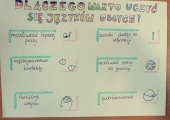 DLACZEGO WARTO UCZYĆ
SIĘ JĘZYKÓW OBCYCH?
możliwość lepszej
pracy
szerszy dostęp do
informacji
międzynarodowe
kontakty
możliwość
za granicą
ćwiczenie
umysłu
podróżowanie